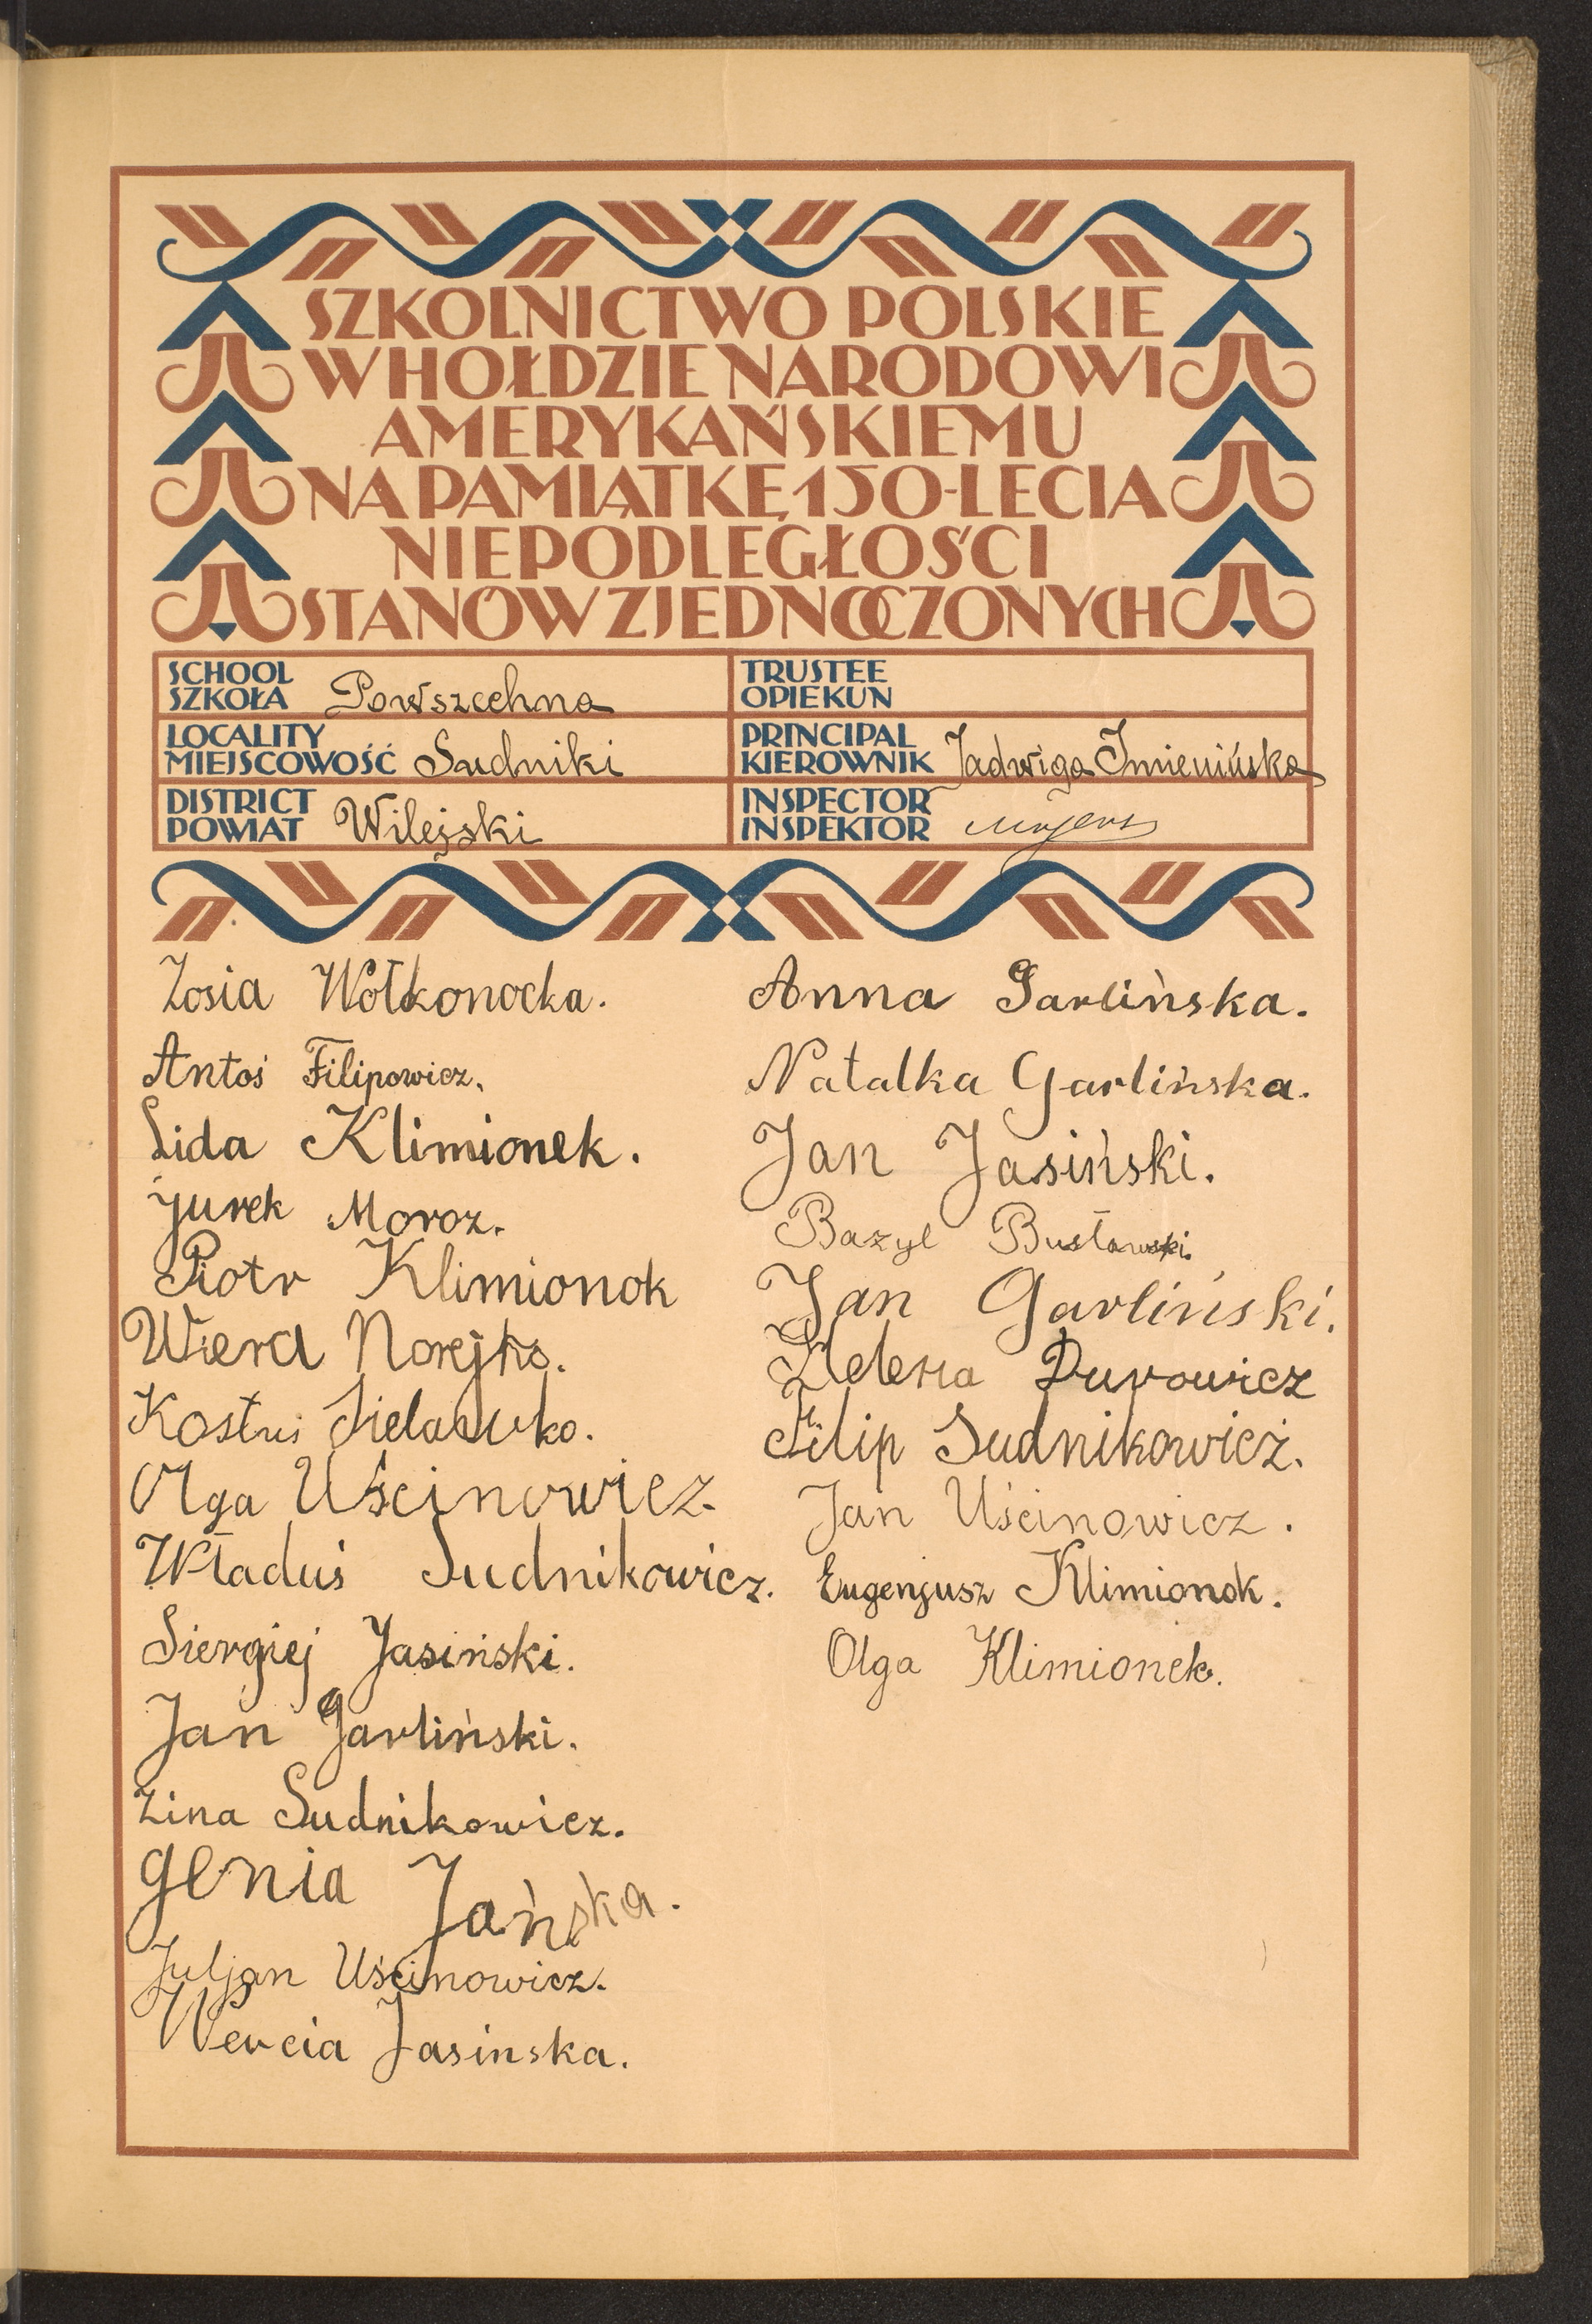 SZKOLNICTWO POLSKIE
W HOŁDZIE NARODOWI
AMERYKAŃSKIEMU
NA PAMIĄTKĘ 150-LECIA
NIEPODLEGŁOŚCI
STANÓW ZJEDNOCZONYCH
SCHOOL
SZKOŁA Powszechna
TRUSTEE
OPIEKUN
LOCALITY
MIEJSCOWOŚĆ Sudniki
PRINCIPAL
KIEROWNIK Jadwiga Imienińska
DISTRICT
POWIAT Wilejski
INSPECTOR
INSPEKTOR
Zosia Wołkonocka.
Antoś Filipowicz.
Lida Klimionek.
Jurek Moroz.
Piotr Klimionok
Wiera Norejko.
Kostuś Sielawko.
Olga Uścinowicz.
Właduś Sudnikowicz.
Siergiej Jasiński.
Jan Garliński.
Zina Sudnikowicz.
Genia Jańska.
Juljan Uścinowicz.
Wercia Jasinska.
Anna Garlińska.
Natalka Garlińska.
Jan Jasiński.
Bazyl Busławski.
Jan Garliński.
Helena Durowicz
Filip Sudnikowicz.
Jan Uścinowicz.
Eugenjusz Klimionok.
Olga Klimionek.